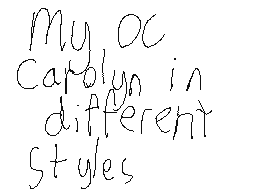 My OC
Carolyn in
different
styles